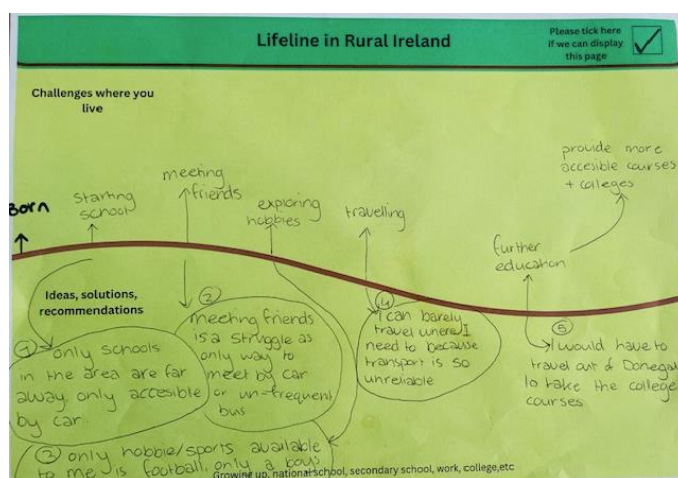 Lifeline in Rural Ireland
Please tick here
if we can display
this page
Challenges where you
live
Born
starting
school
meeting
friends
exploring
hobbies
travelling
further
education
provide more
accesible courses
+ colleges
Ideas, solutions,
recommendations
① only schools
in the area are far
away, only accesible
by car
②
meeting friends
is a struggle as
only way to
meet by car
or un-frequent
bus
③ only hobbie/sports available
to me is football, only a boys
④
I can barely
travel where I
need to because
transport is so
unreliable
⑤
I would have to
travel out of Donegal
to take the college
courses
Growing up, national school, secondary school, work, college,etc